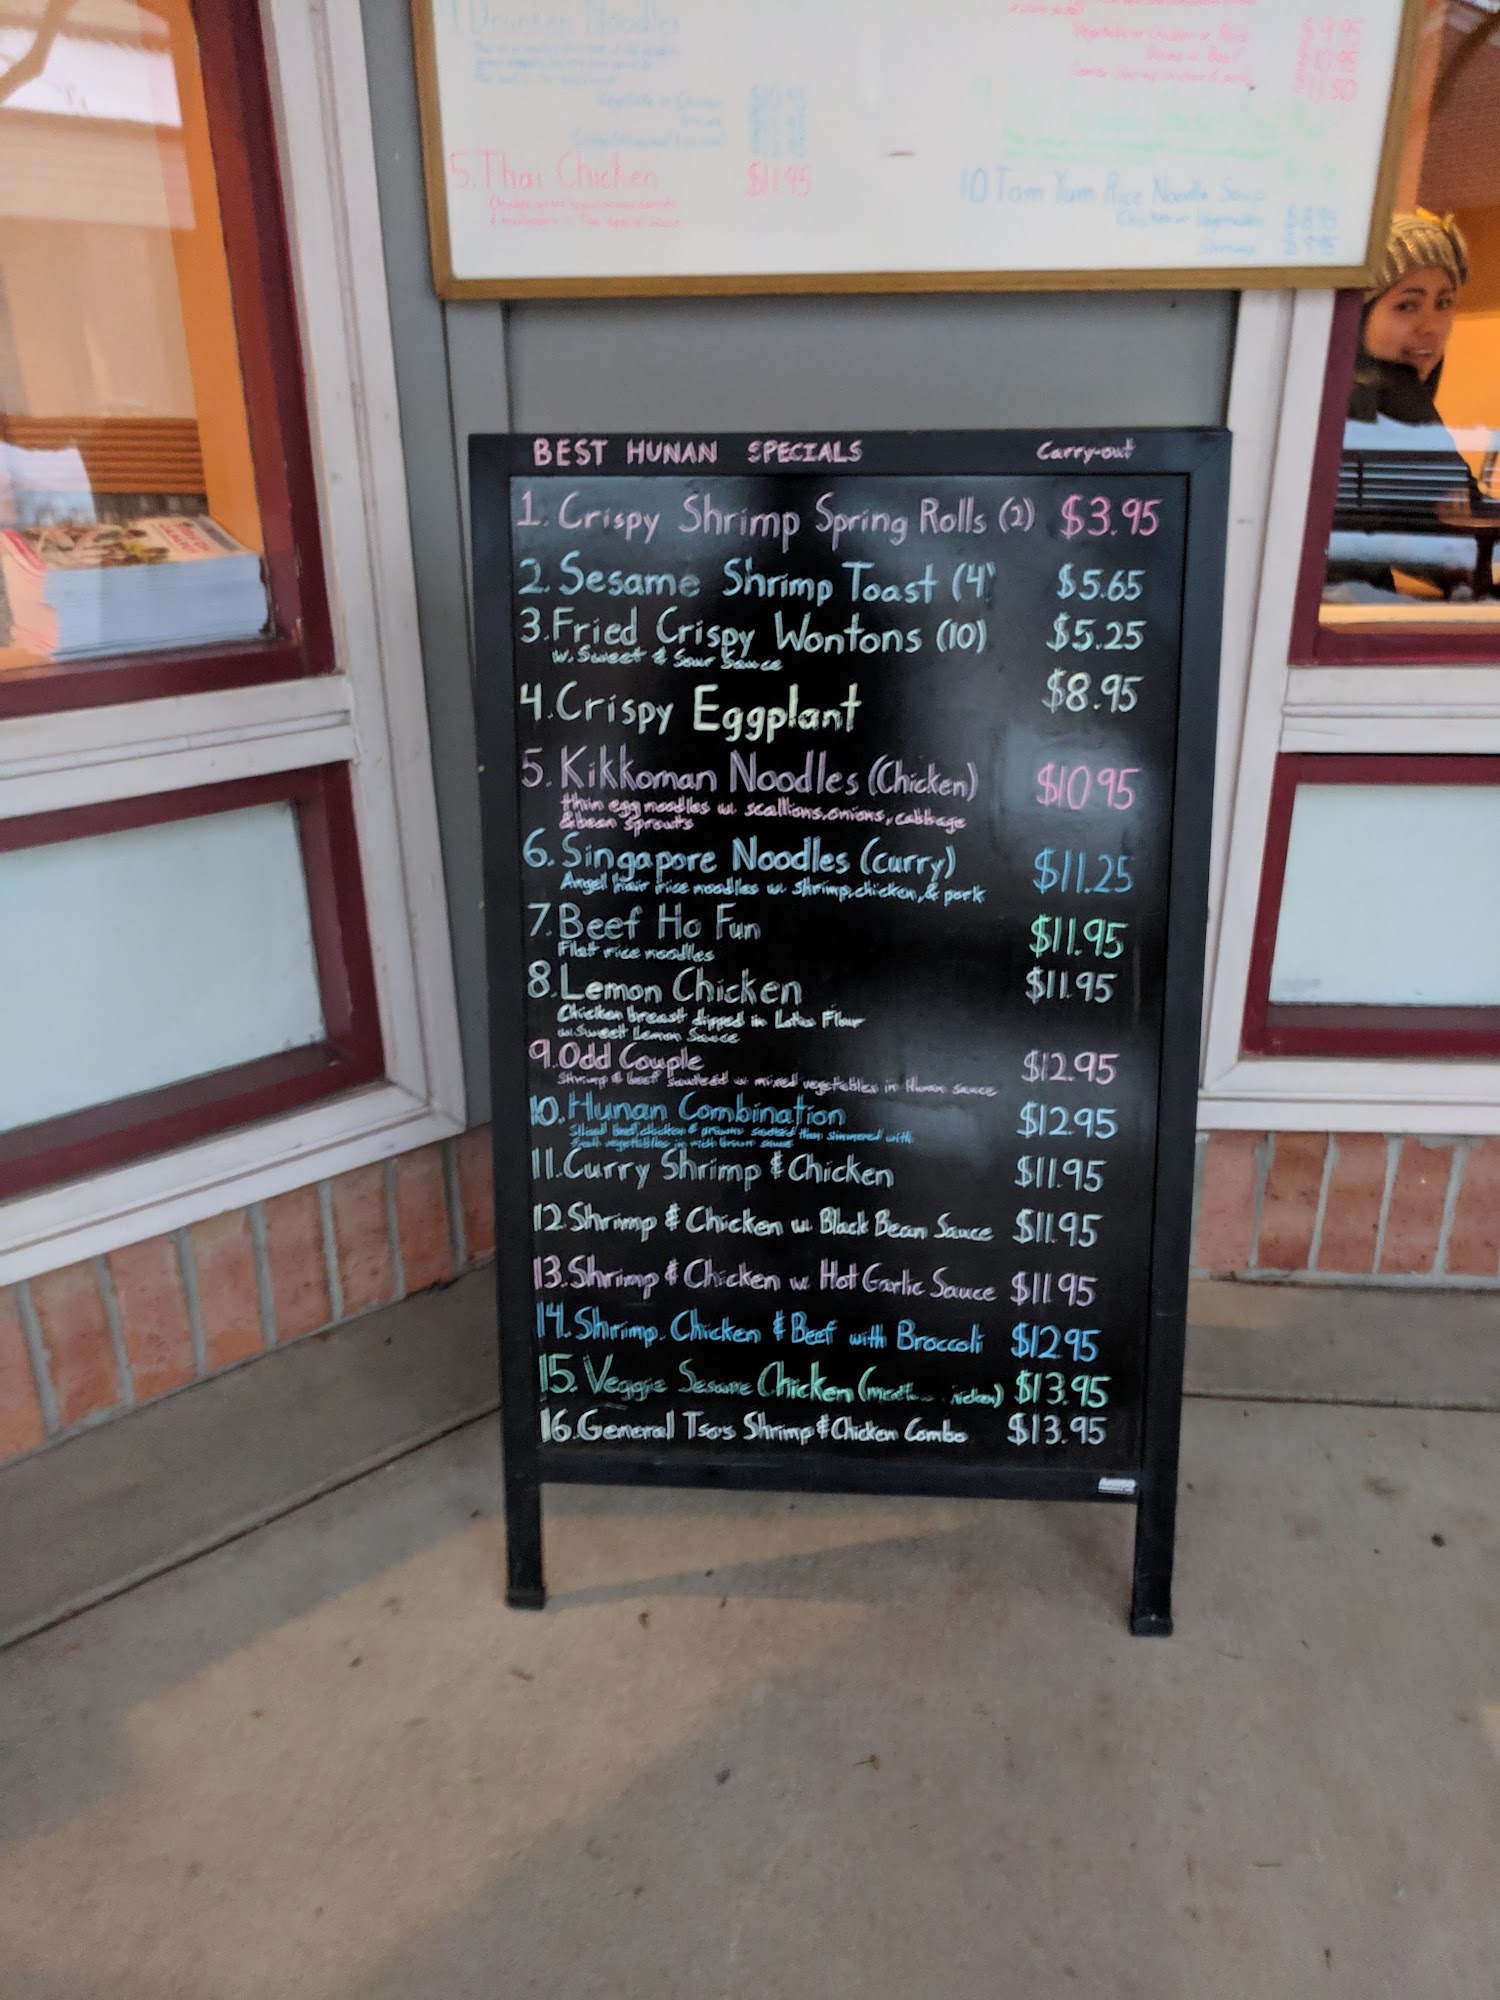 4. Drunken Noodles
5. Thai Chicken $11.95
10 Tom Yum Rice Noodle Soup
Chicken or Vegetables $8.95
Shrimp $9.95
BEST HUNAN SPECIALS Carry-out
1. Crispy Shrimp Spring Rolls (2) $3.95
2. Sesame Shrimp Toast (4) $5.65
3. Fried Crispy Wontons (10) $5.25
w. Sweet & Sour Sauce
4. Crispy Eggplant $8.95
5. Kikkoman Noodles (Chicken) $10.95
thin egg noodles w. scallions, onions, cabbage
& bean sprouts
6. Singapore Noodles (curry) $11.25
Angel hair rice noodles w. shrimp, chicken, & pork
7. Beef Ho Fun $11.95
Flat rice noodles
8. Lemon Chicken $11.95
Chicken breast dipped in Lotus Flour
w. Sweet Lemon Sauce
9. Odd Couple $12.95
Shrimp & beef sauteed w mixed vegetables in Hunan sauce
10. Hunan Combination $12.95
Sliced beef, chicken & prawns sauteed then simmered with
vegetables in rich brown sauce
11. Curry Shrimp & Chicken $11.95
12 Shrimp & Chicken w. Black Bean Sauce $11.95
13. Shrimp & Chicken w Hot Garlic Sauce $11.95
14. Shrimp. Chicken & Beef with Broccoli $12.95
15. Veggie Sesame Chicken $13.95
16. General Tso's Shrimp & Chicken Combo $13.95